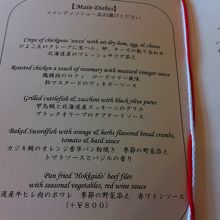 【Main Dishes】
メインディッシュ一品お選びください
Crepe of chickpeas 'socca' with air dry ham, egg, & cheese
ひよこ豆のクレープに生ハム、卵、チーズの取り合わせ
北海道産のフレッシュサラダ添え
Roasted chicken a touch of rosemary with mustard vinegar sauce
鶏腿肉のロティ ローズマリー風味
粒マスタードのヴィネガーソース
Grilled cuttlefish & zucchini with black olive puree
甲烏賊と北海道産ズッキーニのグリエ
ブラックオリーブのタプナードソース
Baked Swordfish with orange & herbs flavored bread crumbs,
tomato & basil sauce
カジキ鮪のオレンジ香草パン粉焼き 季節の野菜添え
トマトソースとバジルの香り
Pan fried 'Hokkaido' beef filet
with seasonal vegetables, red wine sauce
道産牛ヒレ肉のポワレ 季節の野菜添え 赤ワインソース
(+￥800)